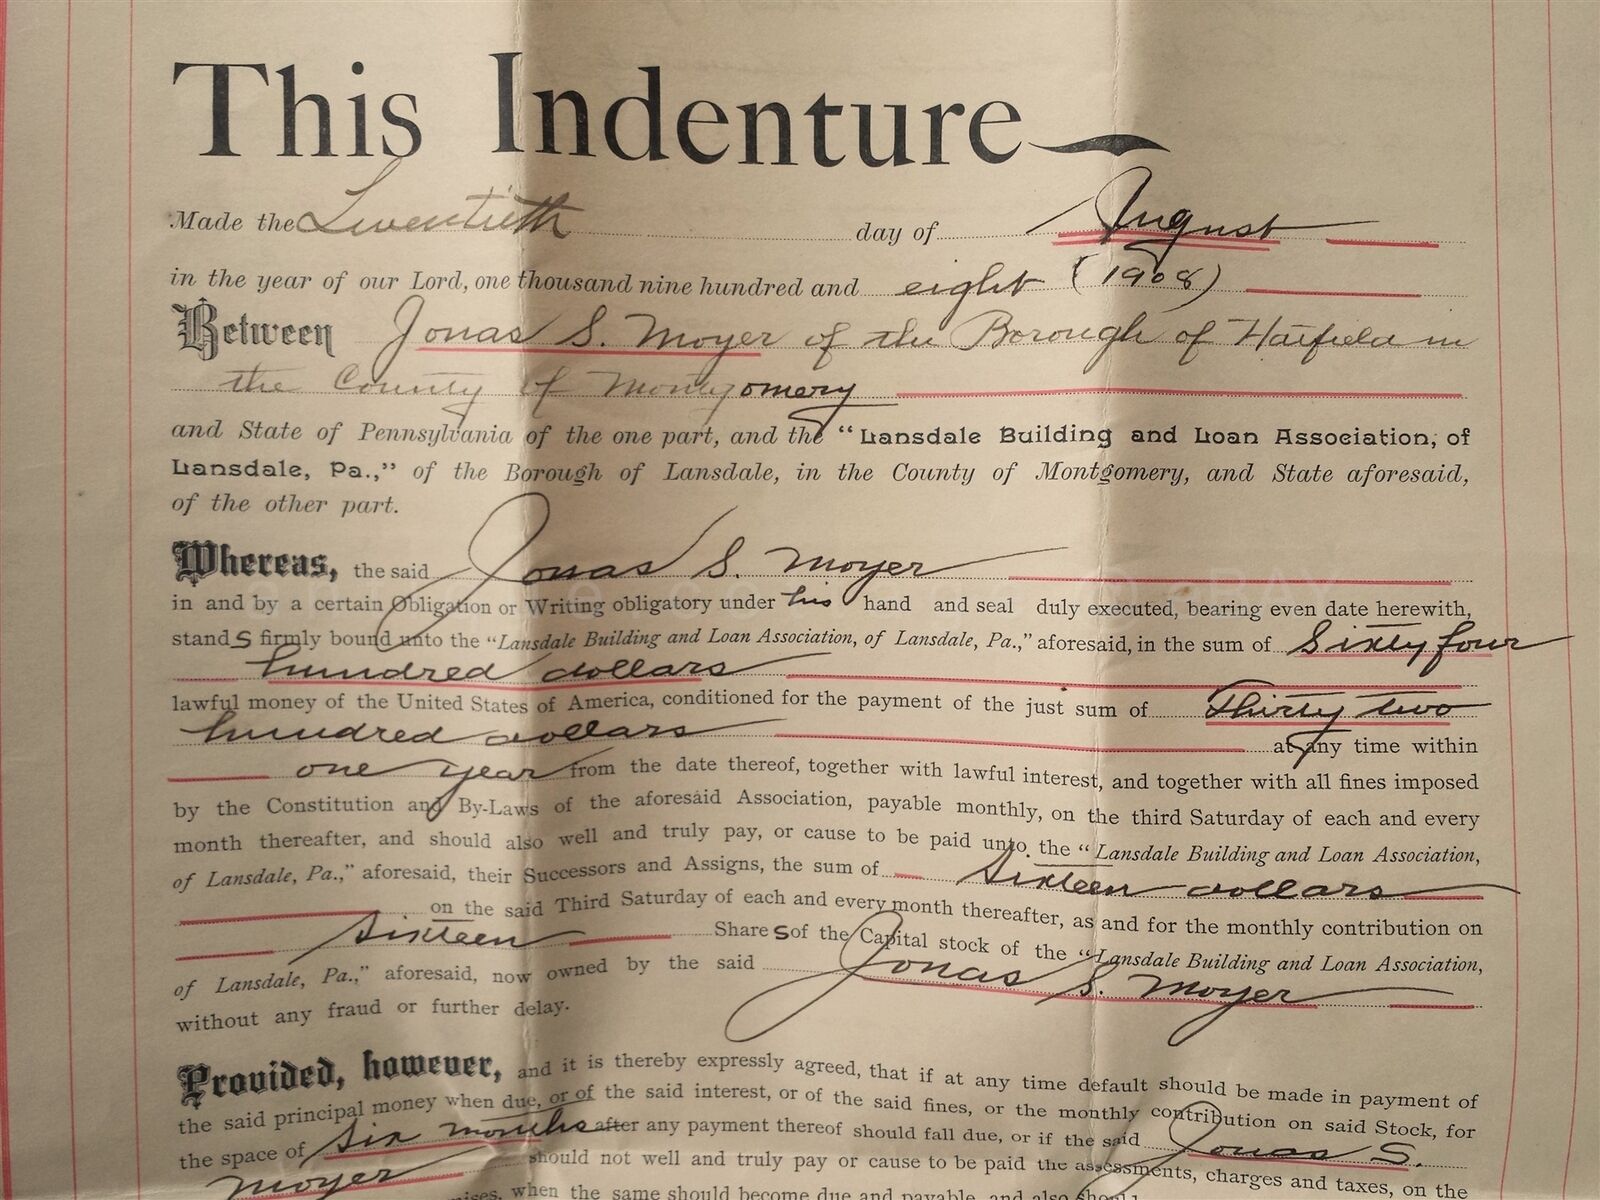 This Indenture
Made the Twentieth day of August
in the year of our Lord, one thousand nine hundred and eight (1908)
Between Jonas S. Moyer of the Borough of Hatfield in
the County of Montgomery
and State of Pennsylvania of the one part, and the "Lansdale Building and Loan Association, of
Lansdale, Pa.," of the Borough of Lansdale, in the County of Montgomery, and State aforesaid,
of the other part.
Whereas, the said Jonas S. Moyer
in and by a certain Obligation or Writing obligatory under his hand and seal duly executed, bearing even date herewith,
stands firmly bound unto the "Lansdale Building and Loan Association, of Lansdale, Pa.," aforesaid, in the sum of Sixty four
hundred dollars
lawful money of the United States of America, conditioned for the payment of the just sum of Thirty two
hundred dollars at any time within
one year from the date thereof, together with lawful interest, and together with all fines imposed
by the Constitution and By-Laws of the aforesaid Association, payable monthly, on the third Saturday of each and every
month thereafter, and should also well and truly pay, or cause to be paid unto the "Lansdale Building and Loan Association,
of Lansdale, Pa.," aforesaid, their Successors and Assigns, the sum of Sixteen dollars
on the said Third Saturday of each and every month thereafter, as and for the monthly contribution on
Sixteen Shares of the Capital stock of the "Lansdale Building and Loan Association,
of Lansdale, Pa.," aforesaid, now owned by the said Jonas S. Moyer
without any fraud or further delay.
Provided, however, and it is thereby expressly agreed, that if at any time default should be made in payment of
the said principal money when due, or of the said interest, or of the said fines, or the monthly contribution on said Stock, for
the space of six months after any payment thereof should fall due, or if the said Jonas S.
Moyer should not well and truly pay or cause to be paid the assessments, charges and taxes, on the
when the same should become due and payable, and also should